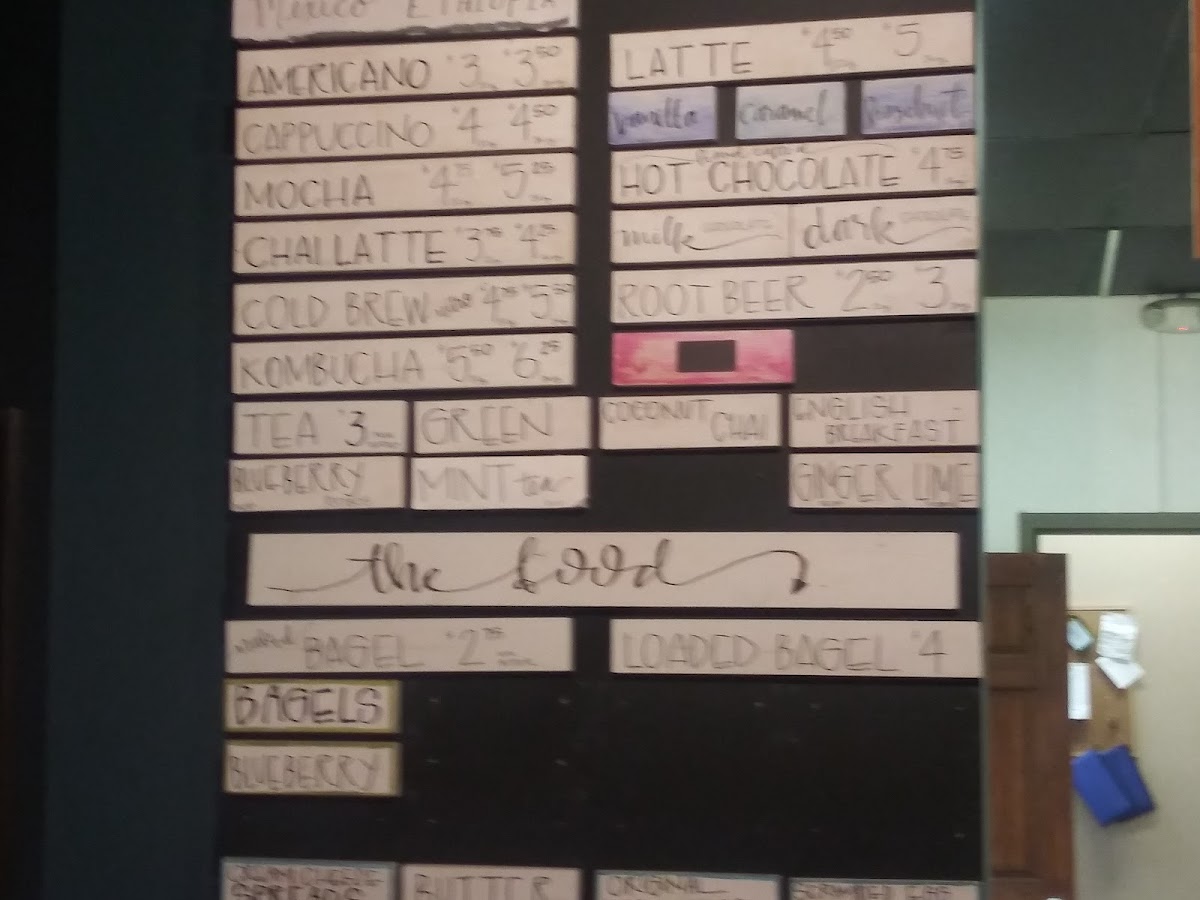 Mexico ETHIOPIA
AMERICANO $3 $3.50
CAPPUCCINO $4 $4.50
MOCHA $4.75 $5.25
CHAI LATTE $3.75 $4.25
COLD BREW $4.75 $5.50
KOMBUCHA $5.50 $6.25
LATTE $4.50 $5
vanilla
caramel
hazelnut
HOT CHOCOLATE $4.75
milk CHOCOLATE
dark CHOCOLATE
ROOT BEER $2.50 $3
TEA $3
GREEN
COCONUT
CHAI
ENGLISH
BREAKFAST
BLUEBERRY
MINT tea
GINGER LIME
the food
BAGEL $2.75
LOADED BAGEL $4
BAGELS
BLUEBERRY
CREAM CHEESE
SPREADS
BUTTER
ORIGINAL
SCRAMBLED EGG